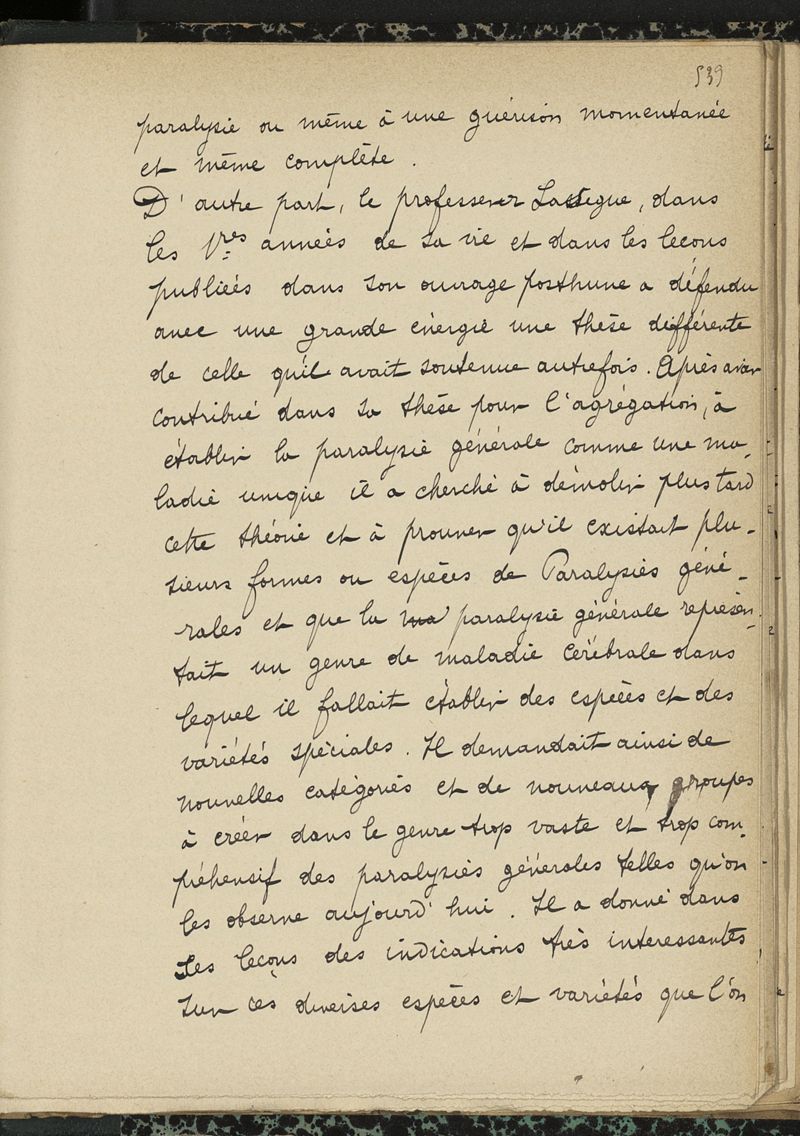 539
paralysie ou même à une guérison momentanée
et même complète.
D'autre part, le professeur Lasègue, dans
les 1res années de sa vie et dans les leçons
publiées dans son ouvrage posthume a défendu
avec une grande énergie une thèse différente
de celle qu'il avait soutenue autrefois. Après avoir
contribué dans sa thèse pour l'agrégation, à
établir la paralysie générale comme une ma-
ladie unique il a cherché à démolir plus tard
cette théorie et à prouver qu'il existait plu-
sieurs formes ou espèces de Paralysies géné-
rales et que la ma paralysie générale représen-
tait un genre de maladie cérébrale dans
lequel il fallait établir des espèces et des
variétés spéciales. Il demandait ainsi de
nouvelles catégories et de nouveaux groupes
à créer dans le genre trop vaste et trop com-
préhensif des paralysies générales telles qu'on
les observe aujourd'hui. Il a donné dans
ses leçons des indications très interessantes
sur ces diverses espèces et variétés que l'on